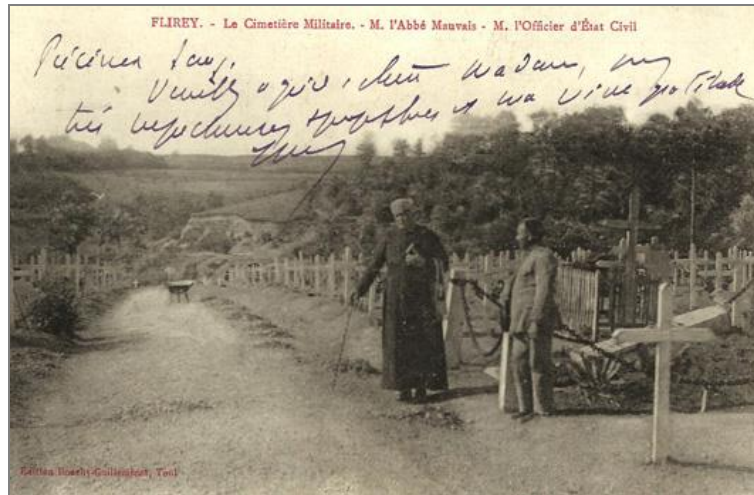 FLIREY. - Le Cimetière Militaire. - M. l'Abbé Mauvais - M. l'Officier d'État Civil
Veuillez agréer, chère Madame, mes
très respectueuses et ma vive gratitude
Edition Bouchy-Guillemenot, Toul